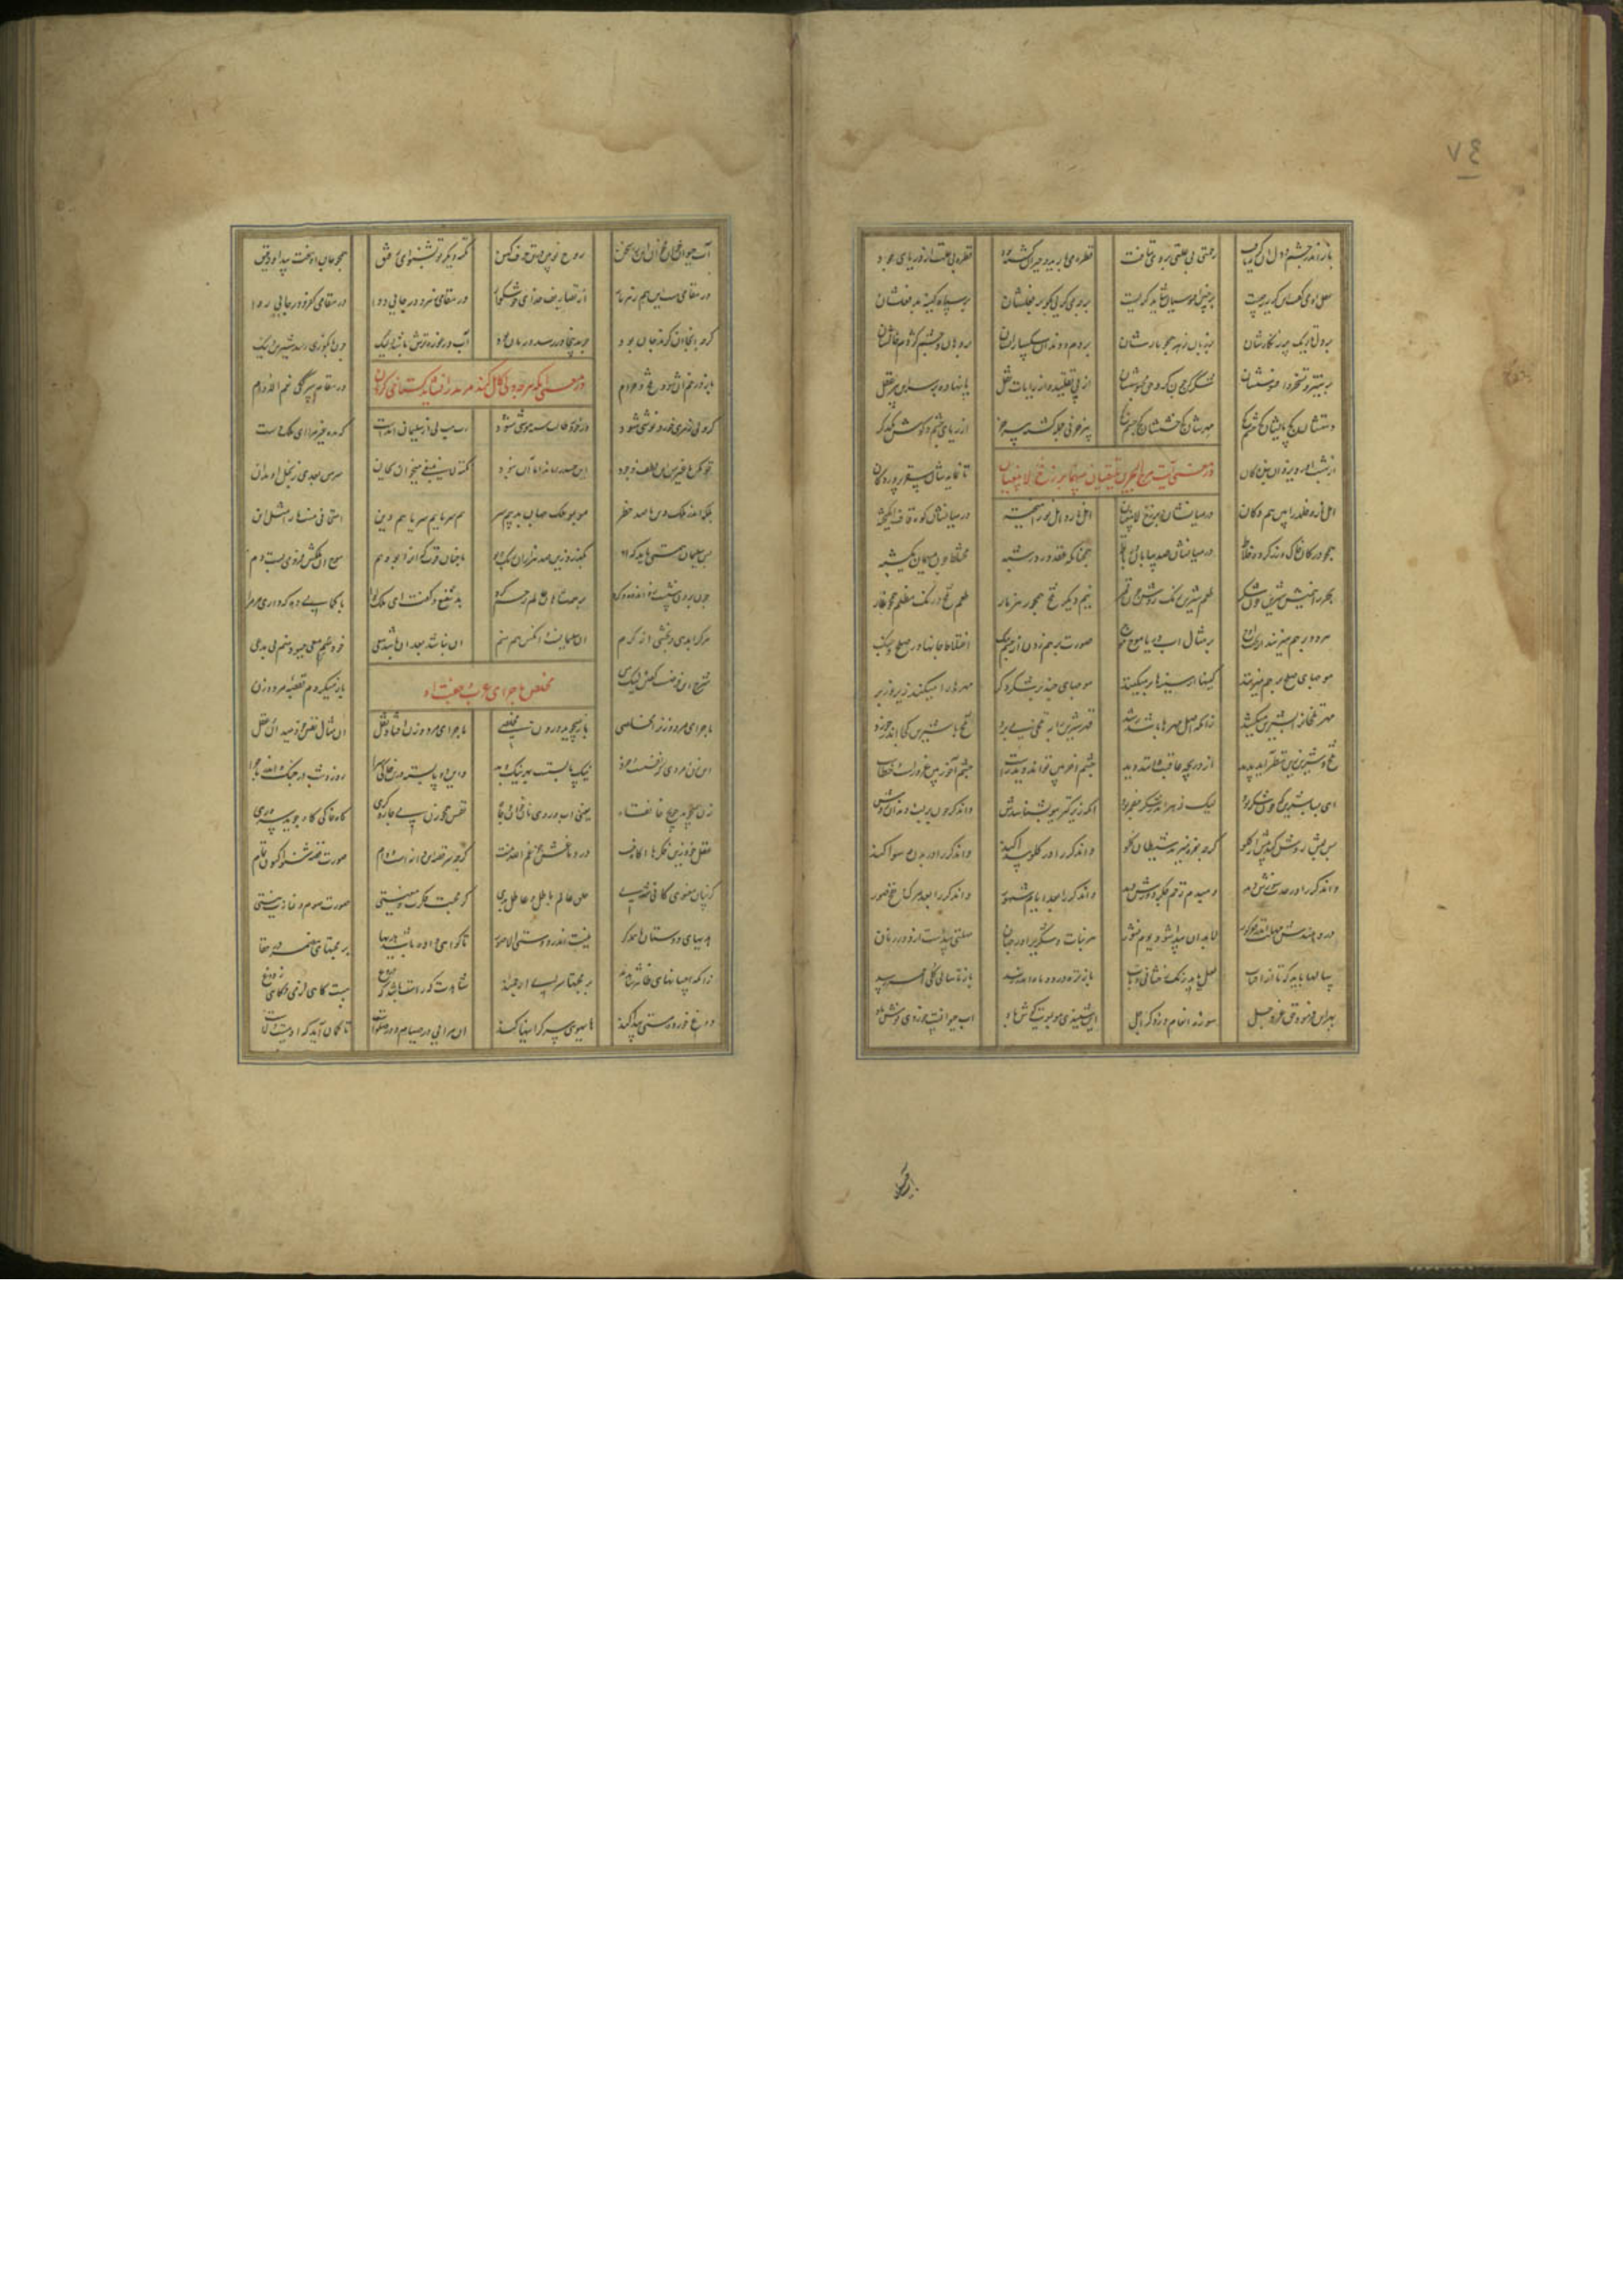 ٧٤
باز اندر چشم و دل او گریه یافت رحمتی بی علتی در وی بتافت قطره می بارید و حیران گشته بود قطره بی علت از دریای جود
عقل او می گفت کین گریه ز چیست بر چنین افسوسیان شاید گریست بر چه می گریی بگو بر فعلشان بر سپاه کینه بد فعلشان
بر دل تاریک پر زنگارشان بر زبان زهر همچو مارشان بر دم و دندان سگسارانشان بر دهان و چشم کژدم خانشان
بر ستیز و تسخر و افسوسشان شکر کن چون کرد حق محبوسشان از پی تقلید و از رایات نقل پا نهاده بر سر این پیر عقل
دستشان کژ پایشان کژ چشم کژ مهرشان کژ خشمشان کژ پیر خر نی جمله گشته پیر خر از ریای چشم و گوش همدگر
از بهشت آورد یزدان بندگان تا نماید شان سقر پروردگان
در معنی آیت مرج البحرین یلتقیان بینهما برزخ لا یبغیان
اهل نار و خلد را بین هم دکان در میانشان برزخ لا یبغیان اهل نار و اهل نور آمیخته در میانشان کوه قاف انگیخته
همچو در کان خاک و زر کرد اختلاط در میانشان صد بیابان و رباط همچنانکه عقد در در و شبه مختلط چون میهمان یکشبه
بحر را نیمیش شیرین چون شکر طعم شیرین رنگ روشن چون قمر نیم دیگر تلخ همچون زهر مار طعم تلخ و رنگ مظلم همچو قار
هر دو بر هم میزنند از تحت و اوج بر مثال آب دریا موج موج صورت بر هم زدن از جسم تنگ اختلاط جانها در صلح و جنگ
موجهای صلح بر هم میزند کینها از سینها بر میکند موجهای جنگ بر شکل دگر مهرها را میکند زیر و زبر
مهر تلخانرا بشیرین میکشد زانکه اصل مهرها باشد رشد قهر شیرین را به تلخی می برد تلخ با شیرین کجا اندر خورد
تلخ و شیرین زین نظر ناید پدید از دریچه عاقبت دانند دید چشم آخر بین تواند دید راست چشم آخور بین غرور است و خطاست
ای بسا شیرین که چون شکر بود لیک زهر اندر شکر مضمر بود انکه زیرکتر ببو بشناسدش واندگر چون بر لب و دندان زدش
پس لبش ردش کند پیش از گلو گرچه نعره میزند شیطان کلوا واندگر را در گلو پیدا کند واندگر را در بدن رسوا کند
واندگر را در حدث سوزش دهد دمبدم زخم جگر دوزش دهد واندگر را بعد ایام و شهور واندگر را بعد مرگ از نفخ صور
ور دهندش مهلت اندر قعر گور لابد آن پیدا شود یوم نشور هر نبات و شکری را در جهان مهلتی پیداست از دور زمان
سالها باید که تا از آفتاب لعل یابد رنگ و رخشانی و تاب باز تره در دو ماه اندر رسد باز تا سالی گل احمر رسد
بهر این فرمود حق عز و جل سوره انعام در ذکر اجل این شنیدی مو بمویت گوش باد آب حیوانست خوردی نوش باد
آب حیوان خوان مخوان این را سخن روح نو بین در تن حرف کهن نکته دیگر تو بشنو ای رفیق همچو جان او سخت پیدا و دقیق
در مقامی هست این هم زهر مار از تصاریف خدای خوشگوار در مقامی زهر و در جایی دوا در مقامی کفر و در جایی روا
گرچه آنجا آن گزند جان بود چون بدینجا در رسد درمان بود آب در غوره ترش باشد ولیک چون بانگوری رسد شیرین و نیک
باز در خم آن شود تلخ و حرام در مقام سرکگی نعم الادام
در معنی انکه هر چه ولی کامل کند مرید را نشاید گستاخی کردن
گر ولی زهری خورد نوشی شود ور خورد طالب سیه هوشی شود رب هب لی از سلیمان آمدست که مده غیر مرا این ملک و دست
تو مکن با غیر من این لطف و جود این حسد را ماند اما آن نبود نکته لا ینبغی میخوان بجان سر من بعدی ز بخل او مدان
بلکه اندر ملک دید او صد خطر مو بمو ملک جهان بد بیم سر بیم سر با بیم سر با بیم دین امتحانی نیست ما را مثل این
پس سلیمان همتی باید که او بگذرد زین صد هزاران رنگ و بو با چنان قوت که او را بود هم موج آن ملکش فرو می بست دم
چون برو بنشست زین اندوه گرد بر همه شاهان عالم رحم کرد شد شفیع و گفت این ملک و لوا با کمالی ده که دادی مر مرا
هر کرا بدهی و بخشی از کرم او سلیمانست و انکس هم منم او نباشد بعدی او باشد معی خود معی چبود منم بی مدعی
شرح این فرضست گفتن لیک من باز میگردم بقصه مرد و زن
مخلص ماجرای عرب و جفت او
ماجرای مرد و زن را مخلصی باز میجوید درون مخلصی ماجرای مرد و زن افتاد نقل آن مثال نفس خود میدان و عقل
این زن و مردی که نفسست و خرد نیک بایست بهر نیک و بد واین دو بایسته درین خاکی سرا روز و شب در جنگ و اندر ماجرا
زن همی جوید حویج خانقاه یعنی آب رو و نان و خوان و جاه نفس همچون زن پی چاره گری گاه خاکی گاه جوید سروری
عقل خود زین فکرها آگاه نیست در دماغش جز غم الله نیست گرچه سر قصه این دانه است و دام صورت قصه شنو اکنون تمام
گر بیان معنوی کافی شدی خلق عالم باطل و عاطل بدی گر محبت فکرت و معنیستی صورت صوم و نمازت نیستی
هدیهای دوستان با همدگر نیست اندر دوستی الا صور تا گواهی داده باشد هدیها بر محبتهای مضمر در خفا
زانکه احسانهای ظاهر شاهدند بر محبتهای سر ای ارجمند شاهدت گه راست باشد گه دروغ مست گاهی از می و گاهی ز دوغ
دوغ خورده مستی پیدا کند های هوی و سرگرانیها کند آن مرایی در صیام و در صلات تا گمان آید که او مست ولاست